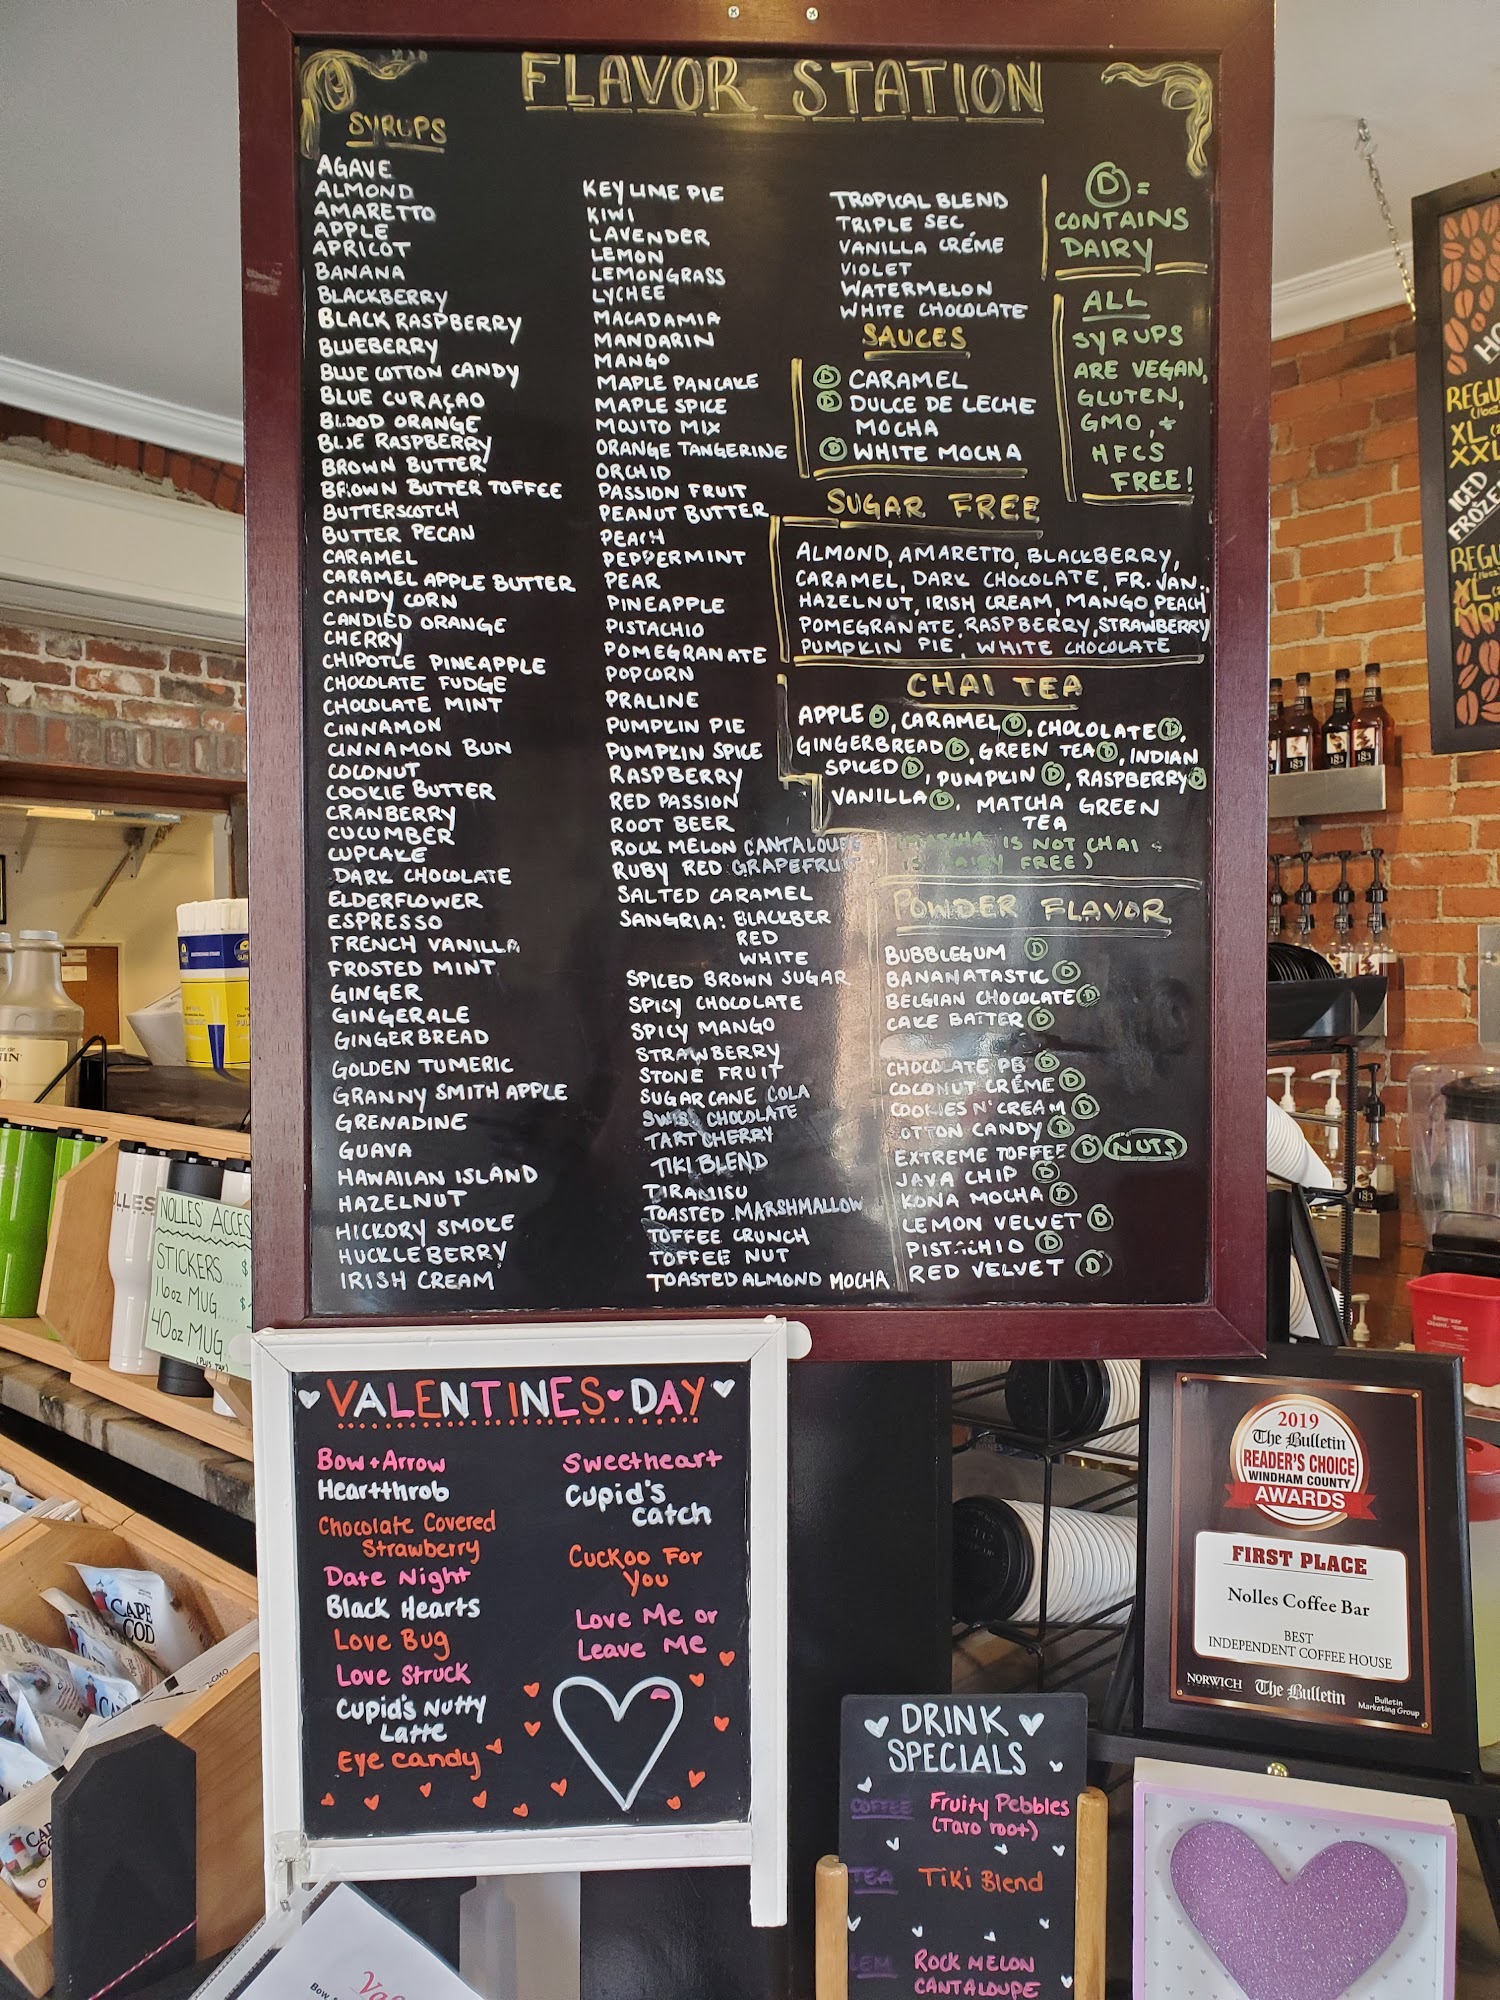 FLAVOR STATION
SYRUPS
AGAVE
ALMOND
AMARETTO
APPLE
APRICOT
BANANA
BLACKBERRY
BLACK RASPBERRY
BLUEBERRY
BLUE COTTON CANDY
BLUE CURAÇAO
BLOOD ORANGE
BLUE RASPBERRY
BROWN BUTTER
BROWN BUTTER TOFFEE
BUTTERSCOTCH
BUTTER PECAN
CARAMEL
CARAMEL APPLE BUTTER
CANDY CORN
CANDIED ORANGE
CHERRY
CHIPOTLE PINEAPPLE
CHOCOLATE FUDGE
CHOCOLATE MINT
CINNAMON
CINNAMON BUN
COCONUT
COOKIE BUTTER
CRANBERRY
CUCUMBER
CUPCAKE
DARK CHOCOLATE
ELDERFLOWER
ESPRESSO
FRENCH VANILLA
FROSTED MINT
GINGER
GINGERALE
GINGERBREAD
GOLDEN TUMERIC
GRANNY SMITH APPLE
GRENADINE
GUAVA
HAWAIIAN ISLAND
HAZELNUT
HICKORY SMOKE
HUCKLEBERRY
IRISH CREAM
KEY LIME PIE
KIWI
LAVENDER
LEMON
LEMONGRASS
LYCHEE
MACADAMIA
MANDARIN
MANGO
MAPLE PANCAKE
MAPLE SPICE
MOJITO MIX
ORANGE TANGERINE
ORCHID
PASSION FRUIT
PEANUT BUTTER
PEACH
PEPPERMINT
PEAR
PINEAPPLE
PISTACHIO
POMEGRANATE
POPCORN
PRALINE
PUMPKIN PIE
PUMPKIN SPICE
RASPBERRY
RED PASSION
ROOT BEER
ROCK MELON CANTALOUPE
RUBY RED GRAPEFRUIT
SALTED CARAMEL
SANGRIA: BLACKBER
RED
WHITE
SPICED BROWN SUGAR
SPICY CHOCOLATE
SPICY MANGO
STRAWBERRY
STONE FRUIT
SUGARCANE COLA
SWISS CHOCOLATE
TART CHERRY
TIKI BLEND
TIRAMISU
TOASTED MARSHMALLOW
TOFFEE CRUNCH
TOFFEE NUT
TOASTED ALMOND MOCHA
TROPICAL BLEND
TRIPLE SEC
VANILLA CRÉME
VIOLET
WATERMELON
WHITE CHOCOLATE
D =
CONTAINS
DAIRY
ALL
SYRUPS
ARE VEGAN,
GLUTEN,
GMO, +
HFCS
FREE!
SAUCES
D CARAMEL
D DULCE DE LECHE
MOCHA
D WHITE MOCHA
SUGAR FREE
ALMOND, AMARETTO, BLACKBERRY,
CARAMEL, DARK CHOCOLATE, FR. VAN.,
HAZELNUT, IRISH CREAM, MANGO, PEACH
POMEGRANATE, RASPBERRY, STRAWBERRY
PUMPKIN PIE, WHITE CHOCOLATE
CHAI TEA
APPLE D, CARAMEL D, CHOCOLATE D,
GINGERBREAD D, GREEN TEA D, INDIAN
SPICED D, PUMPKIN D, RASPBERRY D
VANILLA D, MATCHA GREEN
TEA
(MATCHA IS NOT CHAI &
IS DAIRY FREE)
POWDER FLAVOR
BUBBLEGUM D
BANANATASTIC D
BELGIAN CHOCOLATE D
CAKE BATTER D
CHOCOLATE PB D
COCONUT CRÉME D
COOKIES N' CREAM D
COTTON CANDY D
EXTREME TOFFEE D NUTS
JAVA CHIP D
KONA MOCHA D
LEMON VELVET D
PISTACHIO D
RED VELVET D
VALENTINES DAY
Bow + Arrow
Heartthrob
Chocolate Covered
Strawberry
Date Night
Black Hearts
Love Bug
Love Struck
Cupid's Nutty
Latte
Eye candy
Sweetheart
Cupid's
Catch
Cuckoo For
You
Love Me or
Leave Me
DRINK
SPECIALS
COFFEE Fruity Pebbles
(Taro root)
TEA Tiki Blend
LEM ROCK MELON
CANTALOUPE
2019
The Bulletin
READER'S CHOICE
WINDHAM COUNTY
AWARDS
FIRST PLACE
Nolles Coffee Bar
BEST
INDEPENDENT COFFEE HOUSE
NORWICH The Bulletin Bulletin
Marketing Group
NOLLES' ACCES
STICKERS $
16oz MUG $
40oz MUG
CAPE
COD
REGU
XL
XXL
ICED
FROZE
REGU
XL